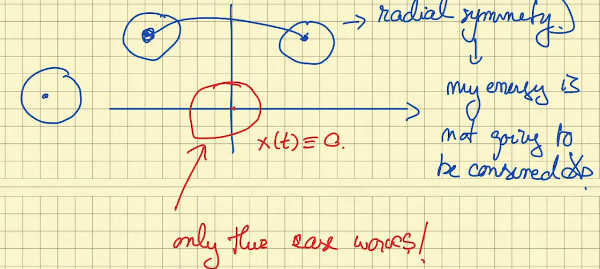 → radial symmetry.)
↓
my energy is
not going to
be conserved
x(t) ≡ 0.
only this case works!